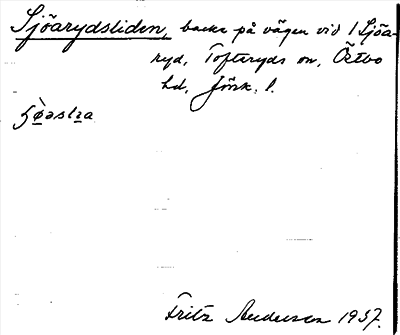 Sjöarydsliden, backe på vägen vid 1 Sjöa-
ryd, Tofteryds sn, Östbo
hd, Jönk. l.
Fritz Anderson 1937.